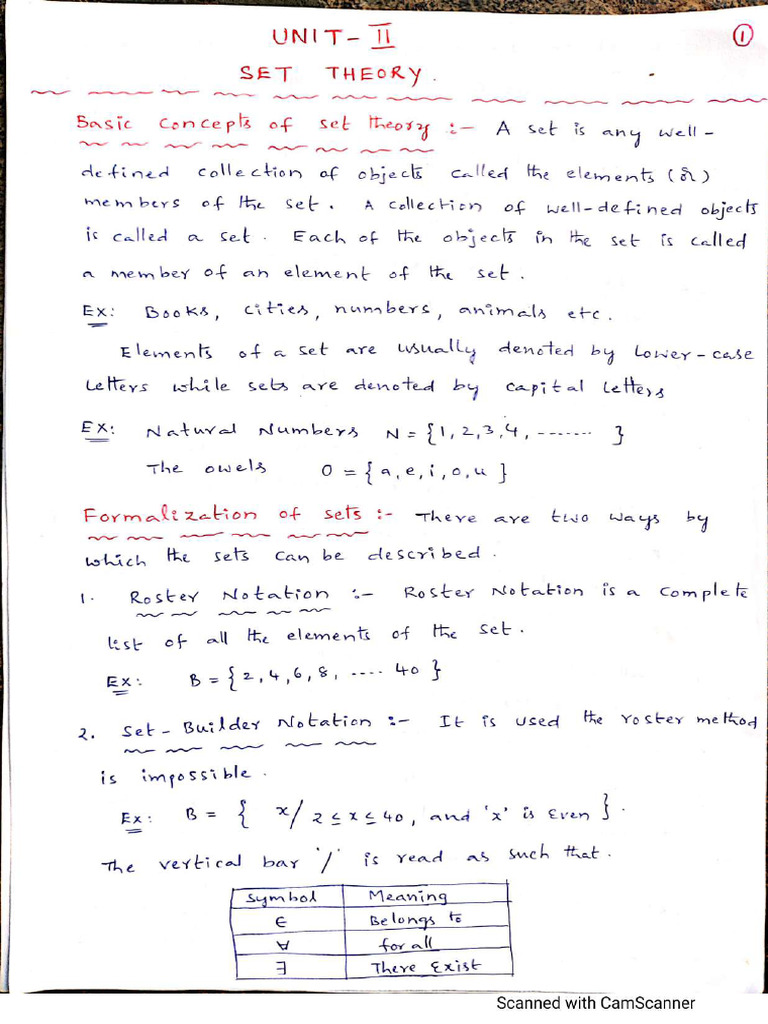 UNIT - II
①
SET THEORY.
Basic concepts of set theory :- A set is any well -
defined collection of objects called the elements (or)
members of the set. A collection of well-defined objects
is called a set. Each of the objects in the set is called
a member of an element of the set.
Ex: Books, cities, numbers, animals etc.
Elements of a set are usually denoted by lower-case
letters while sets are denoted by capital letters
Ex: Natural Numbers N = {1, 2, 3, 4, ------- }
The owels O = {a, e, i, o, u}
Formalization of sets :- There are two ways by
which the sets can be described.
1. Roster Notation :- Roster Notation is a complete
list of all the elements of the set.
Ex: B = {2, 4, 6, 8, .... 40}
2. Set-Builder Notation :- It is used the roster method
is impossible.
Ex: B = { x/ 2 ≤ x ≤ 40, and 'x' is Even }.
The vertical bar '/' is read as such that.
Symbol Meaning
∈ Belongs to
∀ for all
∃ There Exist
Scanned with CamScanner